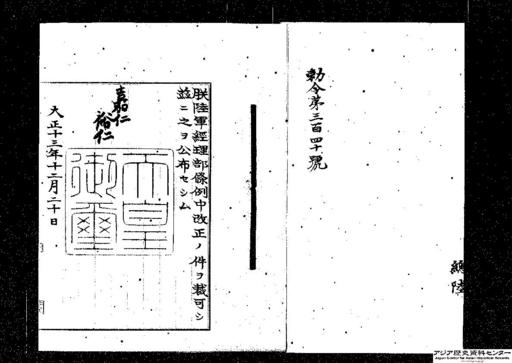 勅令第三百四十號
朕陸軍經理部條例中改正ノ件ヲ裁可シ
茲ニ之ヲ公布セシム
嘉仁
裕仁
天皇
御璽
大正十三年十二月二十日
アジア歴史資料センター
Japan Center for Asian Historical Records